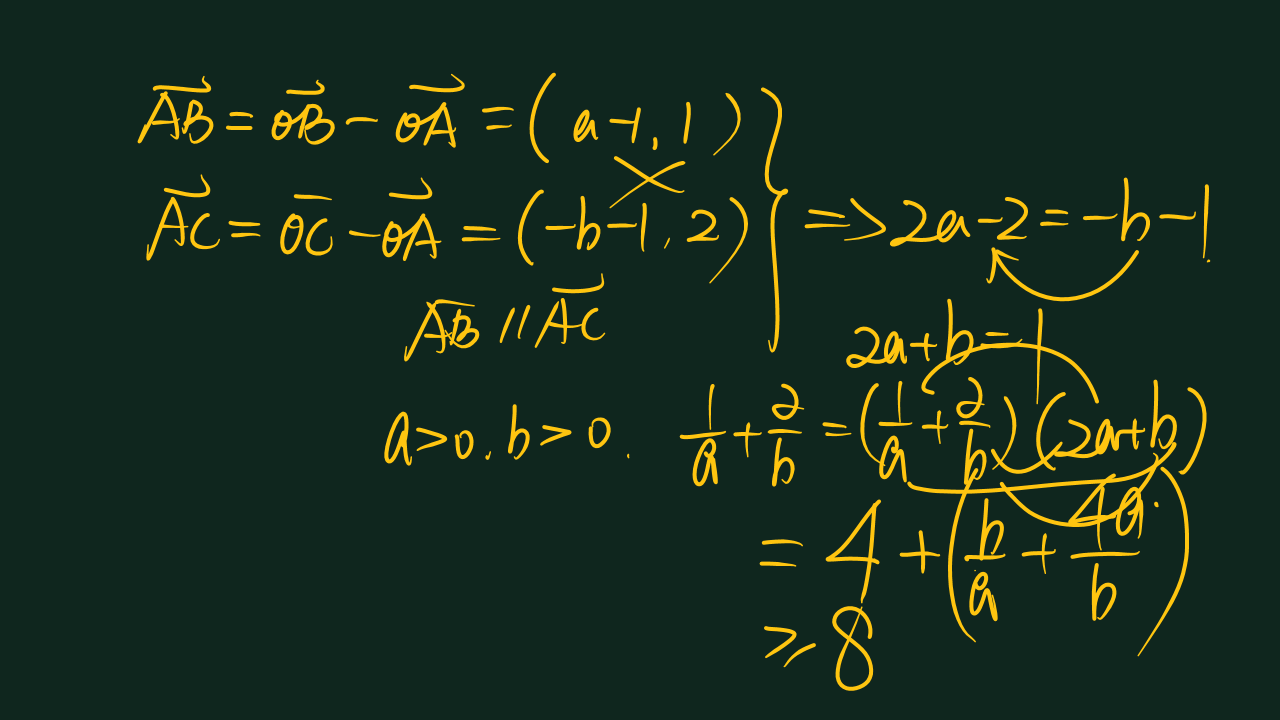 AB = OB - OA = (a-1, 1)
AC = OC - OA = (-b-1, 2)
=> 2a-2 = -b-1
AB // AC
2a+b=1
a>0, b>0.
1/a + 2/b = (1/a + 2/b)(2a+b)
= 4 + (b/a + 4a/b)
≥ 8